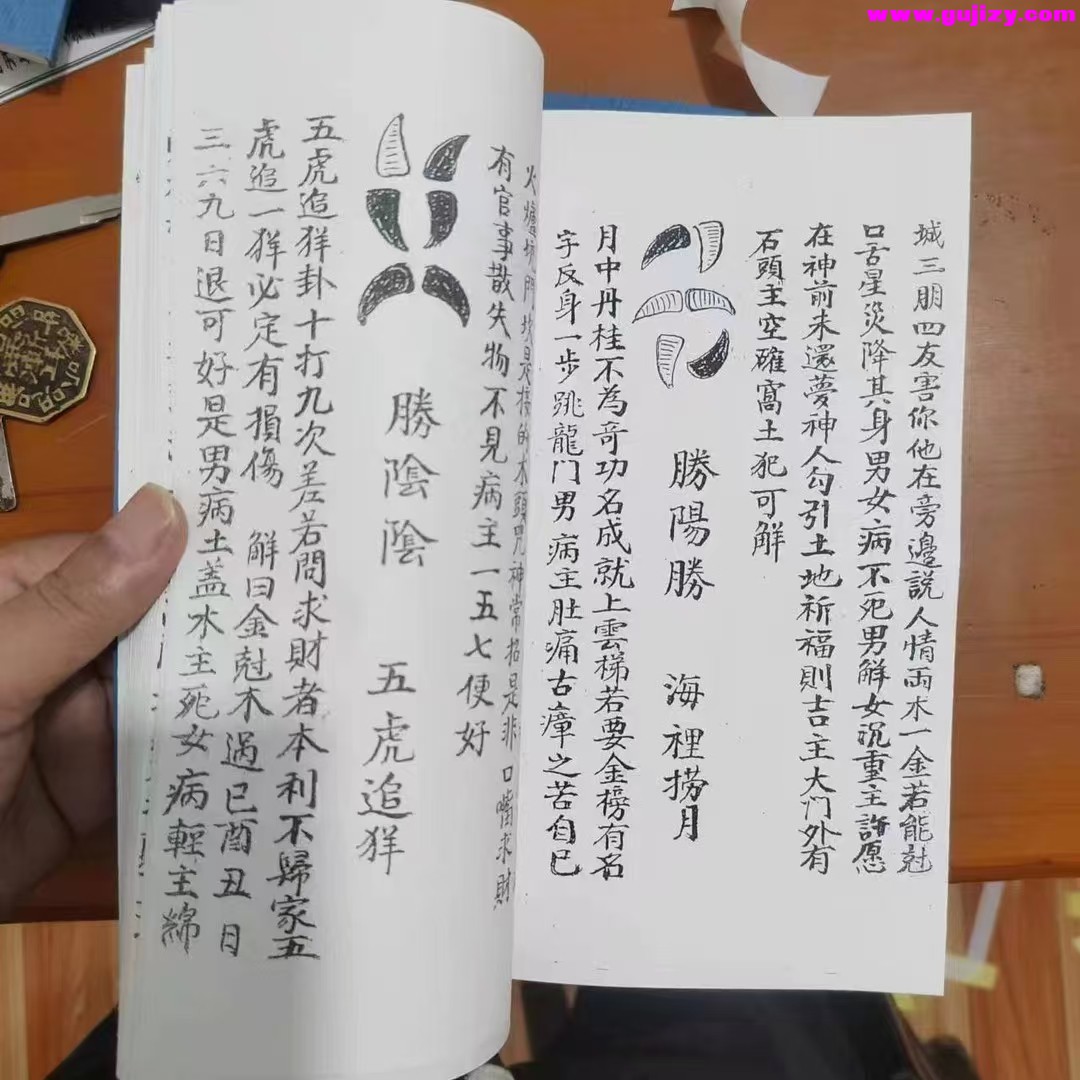 www.gujizy.com
城三朋四友害你他在旁邊説人情兩木一金若能尅
口舌星災降其身男女病不死男解女沉重主許愿
在神前未還夢神人勾引土地祈福則吉主大门外有
石頭主空碓窩土犯可解
勝陽勝 海裡撈月
月中丹桂不為奇功名成就上雲梯若要金榜有名
字反身一步跳龍门男病主肚痛古瘴之苦自已
火爐坑門坎是接的木頭咒神常招是非口嘴求財
有官事散失物不見病主一五七便好
勝陰陰 五虎追羊
五虎追羊卦十打九次差若問求財者本利不歸家五
虎追一羊必定有損傷 解曰金尅木遇巳酉丑日
三六九日退可好是男病土盖水主死女病輕主綿